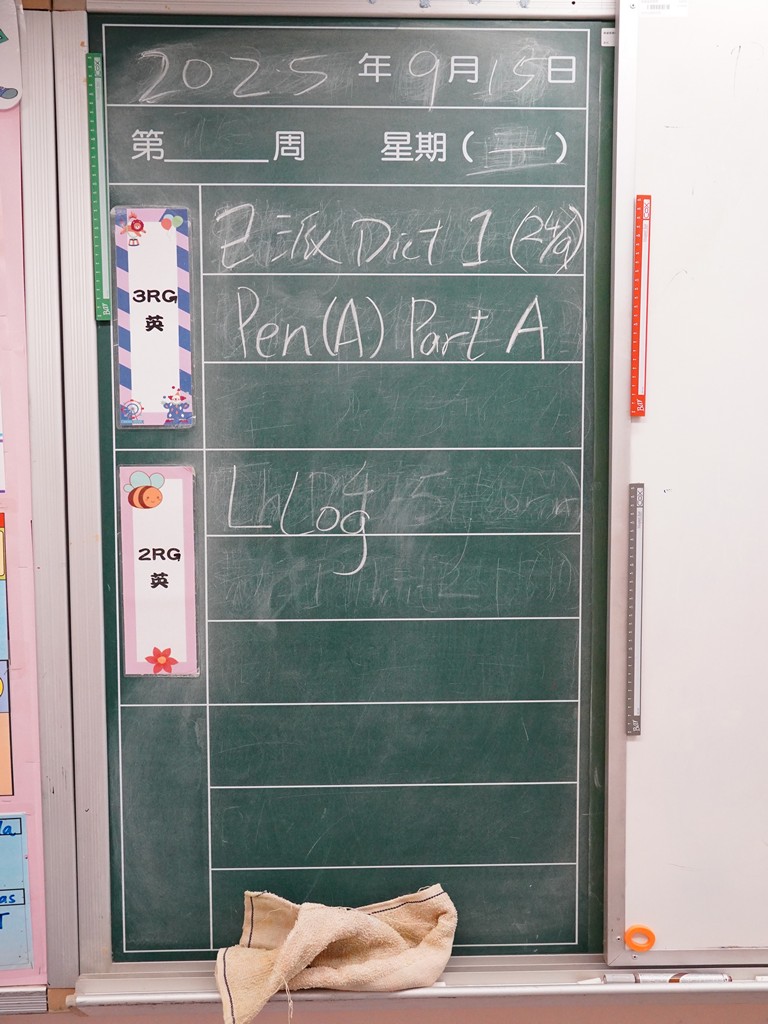 2025年9月15日
第____周 星期( )
3RG
英
已派 Dict 1 (24/9)
Pen(A) Part A
2RG
英
L Log